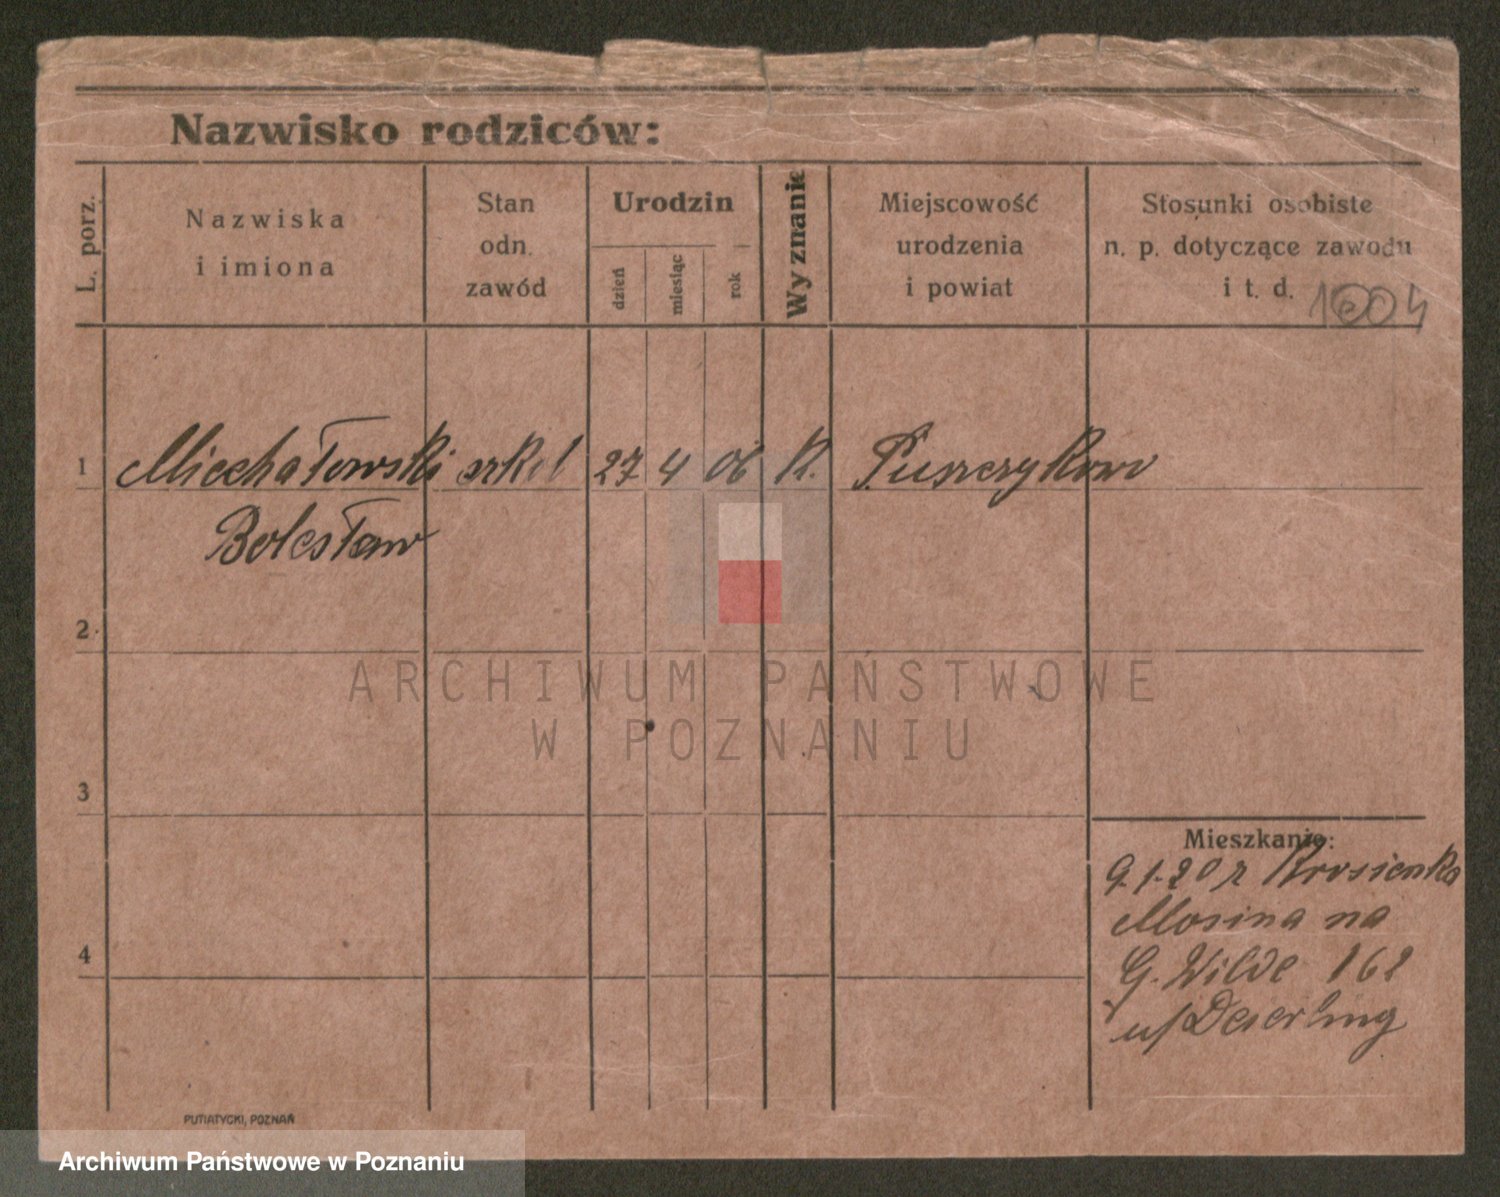 Nazwisko rodziców:
L. porz.
Nazwiska
i imiona
Stan
odn.
zawód
Urodzin
dzień
miesiąc
rok
Wyznanie
Miejscowość
urodzenia
i powiat
Stosunki osobiste
n. p. dotyczące zawodu
i t. d.
1 Miechałowski 27 4 06 K. Puszczykowo
Bolesław
2
3
4
Mieszkanie:
9.1.20 r
Mosina na
G. Wilde 162
u/
PUTIATYCKI, POZNAŃ
ARCHIWUM PAŃSTWOWE
W POZNANIU
Archiwum Państwowe w Poznaniu